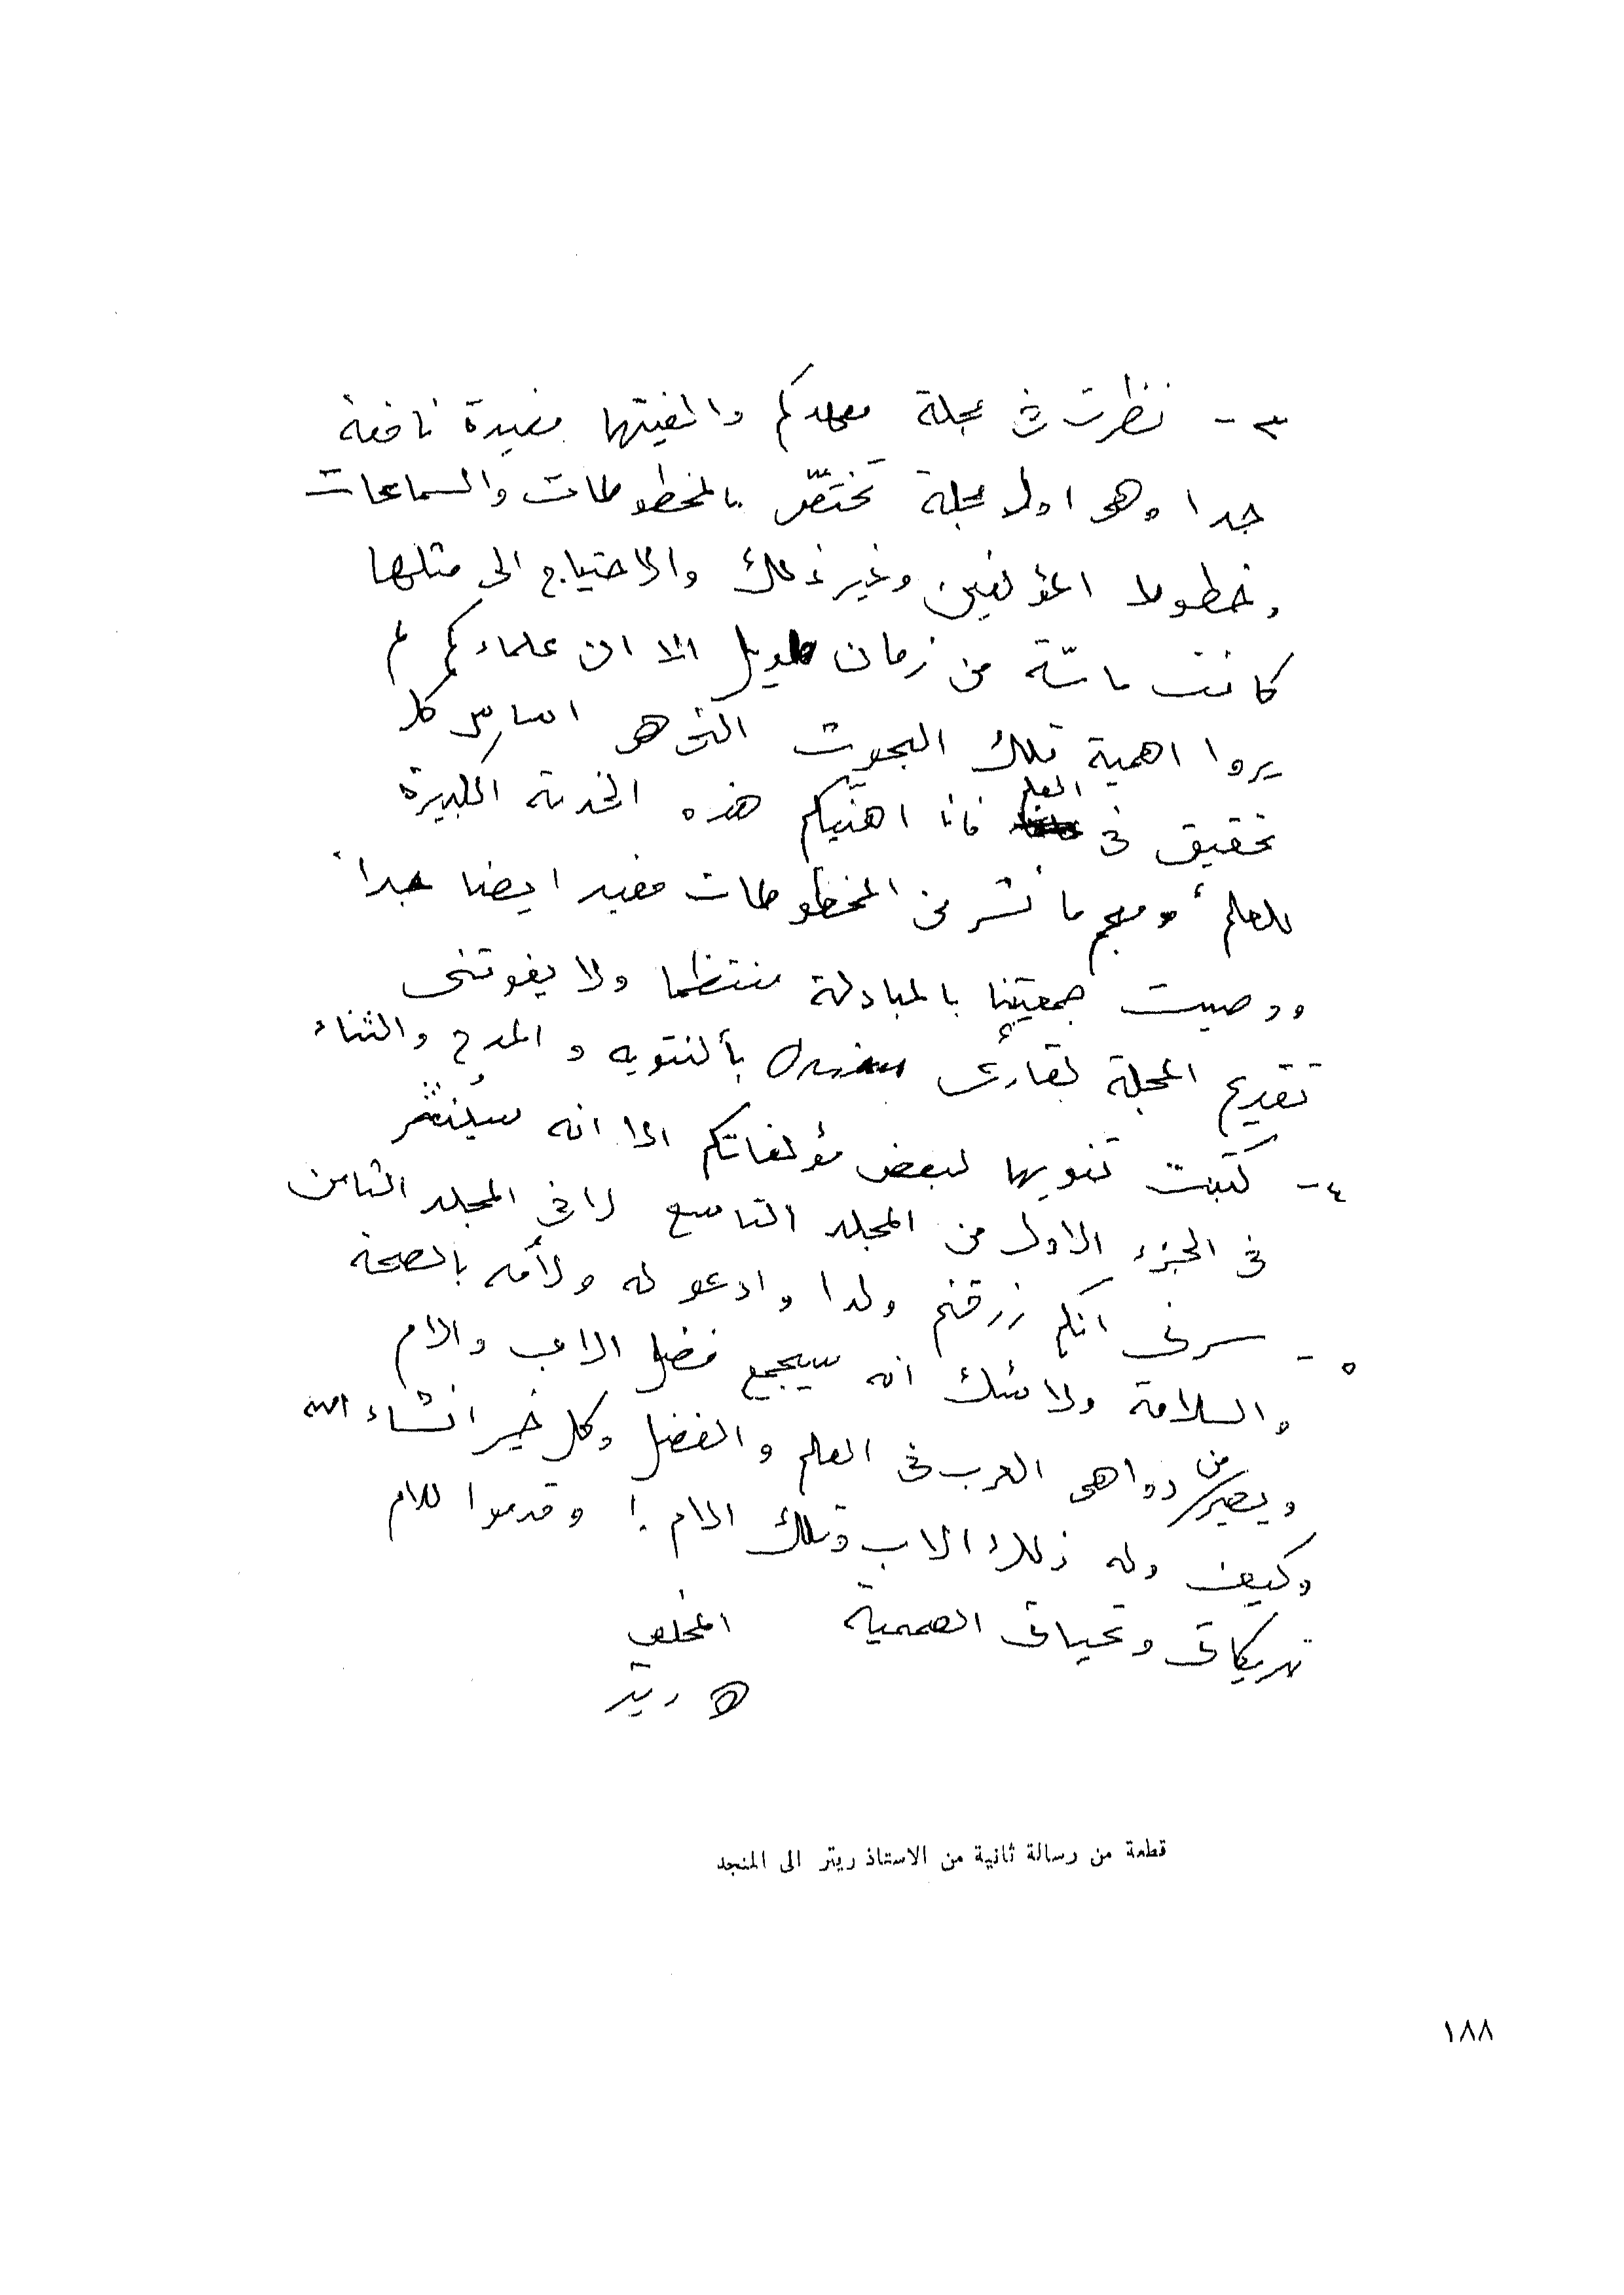 ٣ - نظرت في مجلة معهدكم والفيتها مفيدة نافعة
جدا وهي اول مجلة تختصّ بالمخطوطات والسماعات
وخطوط المؤلفين وغير ذلك والاحتياج الى مثلها
كانت ماسّة من زمان طويل الا ان علماءكم لم
يروا اهمية تلك البحوث التى هى اساس كل
تحقيق فى العلم فانا اهنّيكم هذه الخدمة الكبيرة
للعلم، ومعجم ما نشر من المخطوطات مفيد ايضا جداً
ووصيت جمعيتنا بالمبادلة منتظما ولا يفوتنى
تقديم المجلة لقارئى بألتنويه و المدح والثناء
٤ - كتبت تنويها لبعض مؤلفاتكم الا انه سيُنشر
فى الجزء الاول من المجلد التاسع لا فى المجلد الثامن
٥ - سرنى انكم رزقتم ولدا وادعو له ولأمه بالصحة
والسلامة ولا شك انه سيجمع فضل الاب والام
ويصير من دواهى العرب فى العلم والفضل وكل خير انشاء الله
وكيف وله ذلك الاب وتلك الام! وقدموا للام
تبريكاتى وتحياتى الصميمية المخلص
ه ريتر
قطعة من رسالة ثانية من الاستاذ ريتر الى المنجد
١٨٨